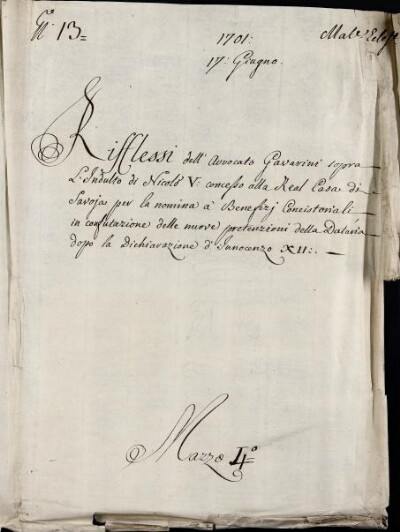 N.º 13=
1701:
17: Giugno.
Mat.e Eccl.
Rifflessi dell'Avvocato Gavarini sopra
L'Indulto di Nicolò V.º concesso alla Real Casa di
Savoja per la nomina à Beneficj Concistoriali
in confutazione delle nuove pretenzioni della Dataria
dopo la Dichiarazione d'Innocenzo XII:.
Mazzo 4º